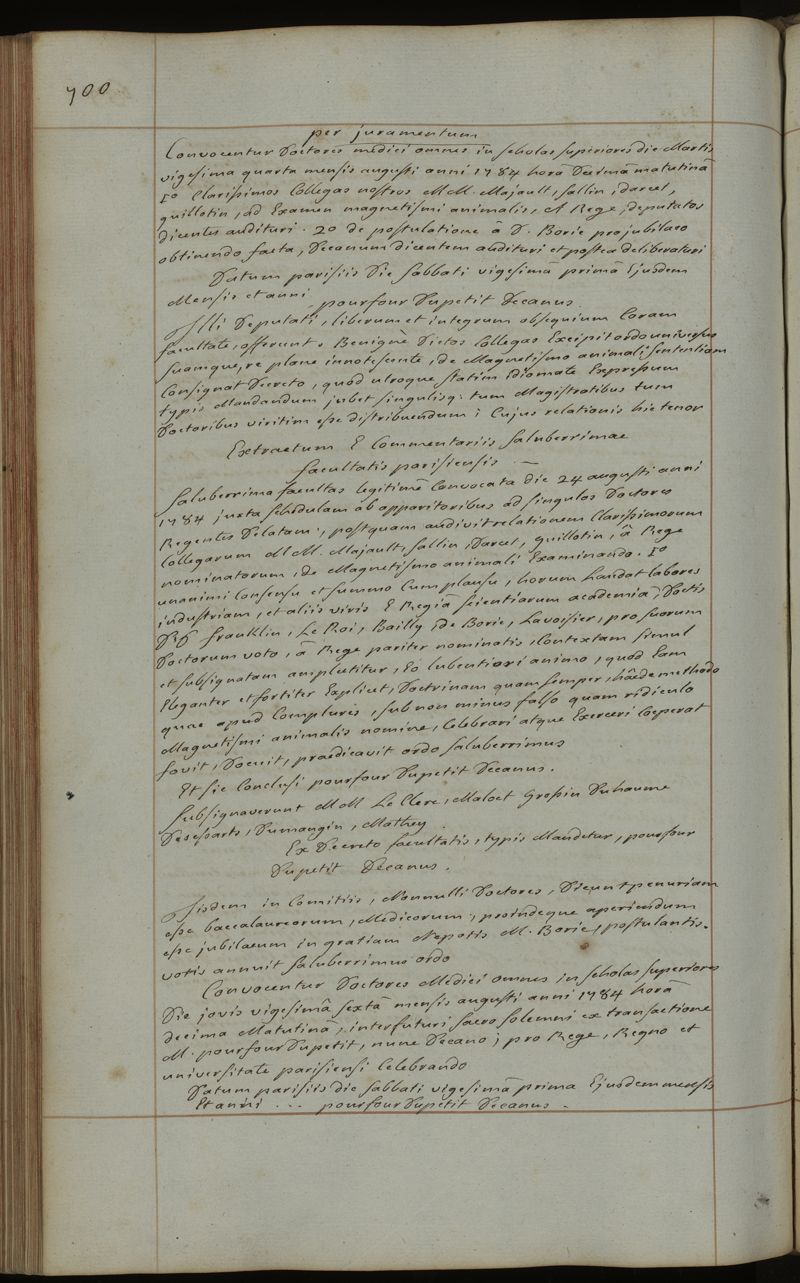 700
per juramentum
Convocentur Doctores medici omnes in scholas superiores die Martis
vigesima quarta mensis augusti anni 1784 horâ Decimâ matutinâ
1o Clarissimos Collegas nostros M M. Majault, Sallin, Darcet,
guillotin, ad Examen magnetismi animalis, A Rege, deputatos
dicentes audituri. 2o de postulatione â D. Borie pro jubilaeo
obtinendo facta, Decanum dicentem audituri et postea deliberaturi
Datum parisiis Die Sabbati vigesimâ primâ Ejusdem
Mensis et anni pourfour Dupetit Decanus.
Illi Deputati, liberum et integrum obsequium Coram
facultate, offerunt. Benignè Dictos Collegas Excipit ordo universus
suamque, re plane innotescente, de Magnetismo animali sententiam
Consignat Decreto, quod utroque statim Idiomate Expressum
typis Mandandum jubet singulisq: tum Magistratibus tum
Doctoribus viritim esse distribuendum; Cujus relationis hic tenor
Extractum E Commentariis Saluberrimae
facultatis parisiensis. —
Saluberrima facultas legitimè Convocata die 24 augusti anni
1784 juxta schedulam ab apparitoribus ad singulos Doctores
Regentes Delatam, postquam audivit relationem Clarissimorum
Collegarum M M. Majault, Sallin, Darcet, guillotin, â Rege
nominatorum, de Magnetismo animali Examinando. 1o
unanimi Consensu et summo Cum plausu, horum laudat labores
industriam, et aliis viris E Regiâ scientiarum academiâ, Doctis
DD franklin, Le Roi, Bailly, De Borie, Lavoisier, pro suorum
Doctorum voto, â Rege pariter nominatis, Contextam simul
et subsignatam amplectitur, Eo lubentiori animo, quod Eam
Eleganter et fortiter Explicet, Doctrinam quam semper, hâc de methodo
quae apud Complures, sub non minus falso quam ridiculo
Magnetismi animalis nomine, Celebrari atque Exerceri Coeperat
fovit, Docuit, praedicavit ordo saluberrimus
Et sic Conclusi pourfour Dupetit Decanus.
Subsignaverunt M M Le Clerc, Maloet Grossin Duhaume
Desessarts, Dumangin, Mathey
Ex Decreto facultatis, typis Mandetur, pourfour
Dupetit Decanus.
Iisdem in Comitiis, Nonnulli Doctores, Dicunt penuriam
esse baccalaureorum, Medicorum, proindeque aperiendum
esse jubilaeum in gratiam Nepotis M. Borie, postulantis.
votis annuit saluberrimus ordo
Convocentur Doctores Medici omnes in scholas superiores
Die jovis vigesimâ sextâ mensis augusti anni 1784 horâ
decima Matutinâ, interfuturi sacro solemni ex transactione
M. pourfour Dupetit, nunc Decano; pro Rege, Regno et
universitate parisiensi Celebrando
Datum parisiis die Sabbati vigesimâ prima Ejusdem mensis
Et anni ... pourfour Dupetit Decanus.